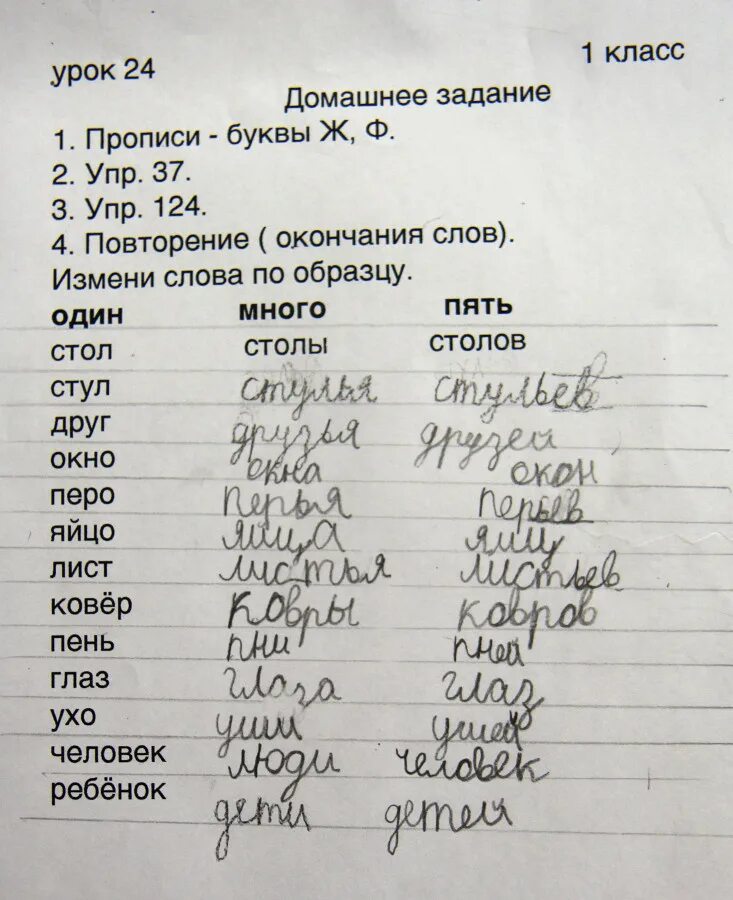 урок 24 1 класс
Домашнее задание
1. Прописи - буквы Ж, Ф.
2. Упр. 37.
3. Упр. 124.
4. Повторение ( окончания слов).
Измени слова по образцу.
один много пять
стол столы столов
стул стулья стульев
друг друзья друзей
окно окна окон
перо перья перьев
яйцо яйца яиц
лист листья листьев
ковёр ковры ковров
пень пни пней
глаз глаза глаз
ухо уши ушей
человек люди человек
ребёнок дети детей